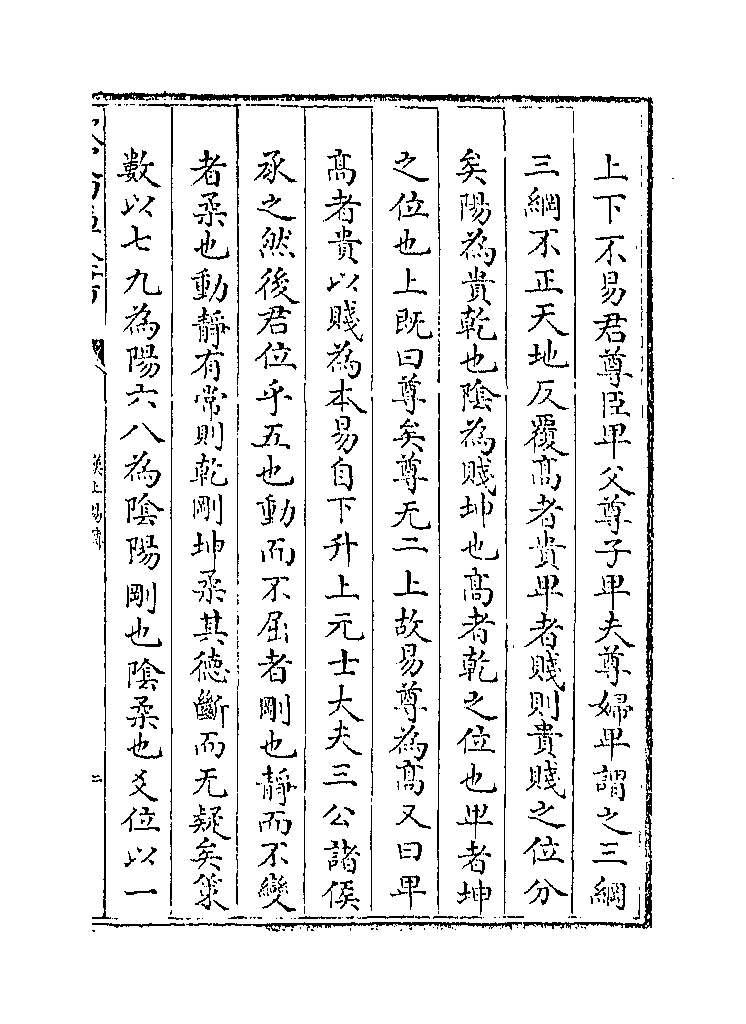 上下不易君尊臣卑父尊子卑夫尊婦卑謂之三綱
三綱不正天地反覆髙者貴卑者賤則貴賤之位分
矣陽為貴乾也隂為賤坤也髙者乾之位也卑者坤
之位也上既曰尊矣尊无二上故易尊為髙又曰卑
髙者貴以賤為本易自下升上元士大夫三公諸侯
承之然後君位乎五也動而不屈者剛也静而不變
者柔也動静有常則乾剛坤柔其徳斷而无疑矣䇿
數以七九為陽六八為隂陽剛也隂柔也爻位以一
漢上易傳
二